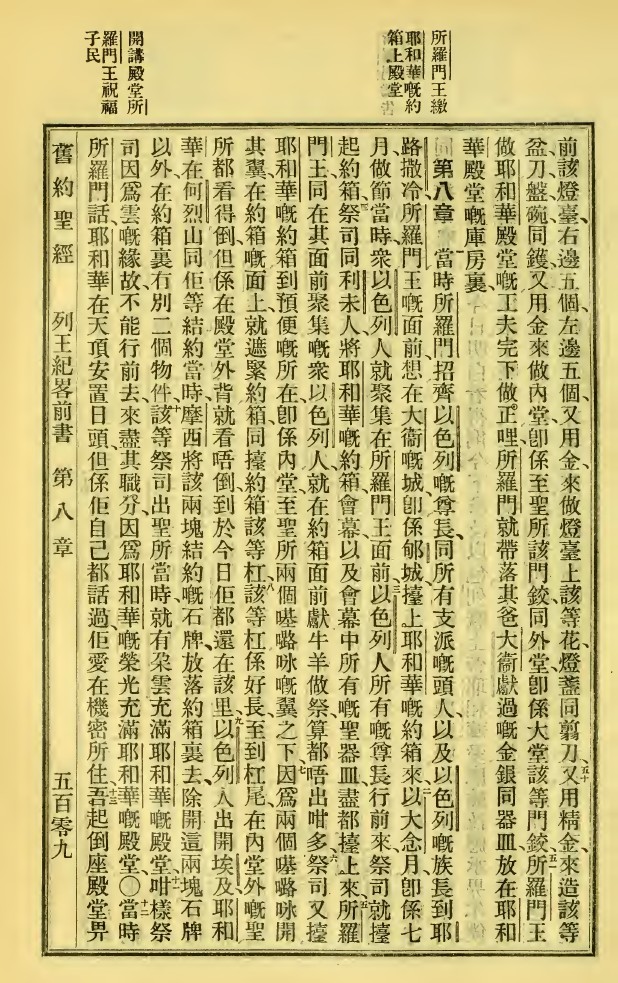 所羅門王繳
耶和華嘅約
箱上殿堂
開講殿堂所
羅門王祝福
子民
前該燈臺右邊五個、左邊五個、又用金來做燈臺上該等花、燈盞同剪刀、五十又用精金來造該等
盆刀盤碗同鑊又用金來做內堂卽係至聖所該門鉸同外堂卽係大堂該等門鉸、五一所羅門王
做耶和華殿堂嘅工夫完下做正哩所羅門就帶落其爸大衞獻過嘅金銀同器皿放在耶和
華殿堂嘅庫房裏
第八章 一當時所羅門招齊以色列嘅尊長同所有支派嘅頭人、以及以色列嘅族長到耶
路撒冷所羅門王嘅面前、想在大衞嘅城卽係郇城、擡上耶和華嘅約箱來、二以大念月卽係七
月做節當時衆以色列人就聚集在所羅門王面前、三以色列人所有嘅尊長行前來祭司就擡
起約箱、四祭司同利未人將耶和華嘅約箱會幕以及會幕中所有嘅聖器皿盡都擡上來、五所羅
門王同在其面前聚集嘅衆以色列人就在約箱面前獻牛羊做祭、算都唔出咁多、六祭司又擡
耶和華嘅約箱到預便嘅所在卽係內堂至聖所兩個𠼻嚕咏嘅翼之下、七因爲兩個𠼻嚕咏開
其翼在約箱嘅面上、就遮緊約箱同擡約箱該等杠、八該等杠係好長、至到杠尾在內堂外嘅聖
所都看得倒但係在殿堂外背就看唔倒到於今日佢都還在該里、九以色列人出開埃及耶和
華在何烈山同佢等結約當時摩西將該兩塊結約嘅石牌放落約箱裏去、除開這兩塊石牌
以外在約箱裏冇別二個物件、十該等祭司出聖所當時、就有朶雲充滿耶和華嘅殿堂、十一咁樣祭
司因爲雲嘅緣故不能行前去來盡其職分、因爲耶和華嘅榮光充滿耶和華嘅殿堂、〇十二當時
所羅門話耶和華在天頂安置日頭但係佢自己都話過佢愛在機密所住、十三吾起倒座殿堂畀
舊約聖經 列王紀畧前書 第八章 五百零九